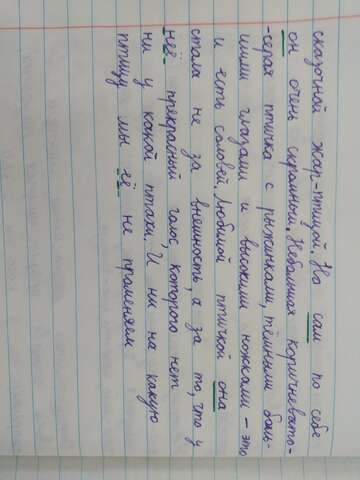 сказочной жар-птицей. Но сам по себе
он очень скромный. Небольшая коричневато-
-серая птичка с рыжинками, тёмными боль-
шими глазами и высокими ножками – это
и есть соловей. Любимой птичкой она
стала не за внешность, а за то, что у
неё прекрасный голос, которого нет
ни у какой птахи. И ни на какую
птицу мы её не променяем